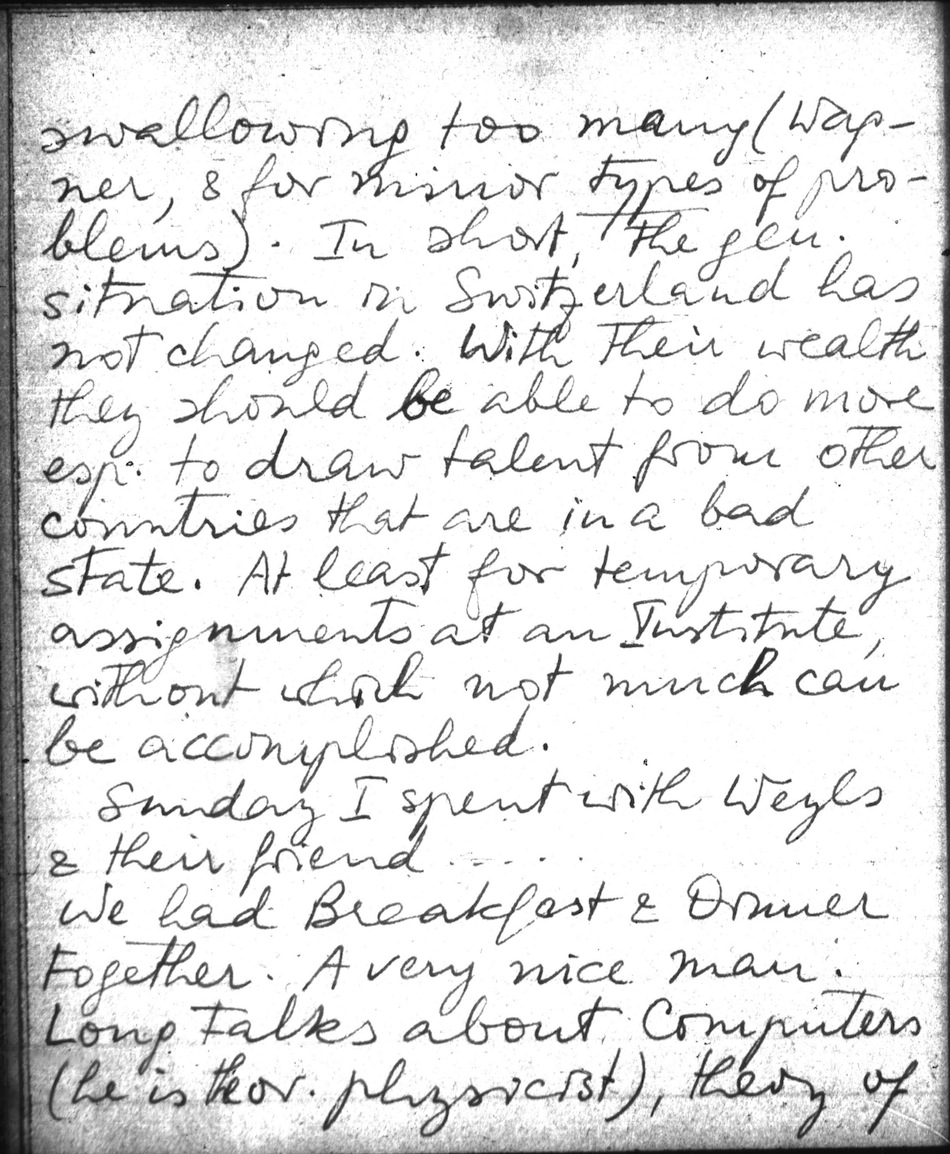 swallowing too many (Wag-
ner, & for minor types of pro-
blems). In short, the gen.
situation in Switzerland has
not changed. With their wealth
they should be able to do more
esp. to draw talent from other
countries that are in a bad
state. At least for temporary
assignments at an Institute,
without which not much can
be accomplished.
Sunday I spent with Weyls
& their friend .....
We had Breakfast & Dinner
together. A very nice man.
Long talks about Computers
(he is theor. physicist), theory of